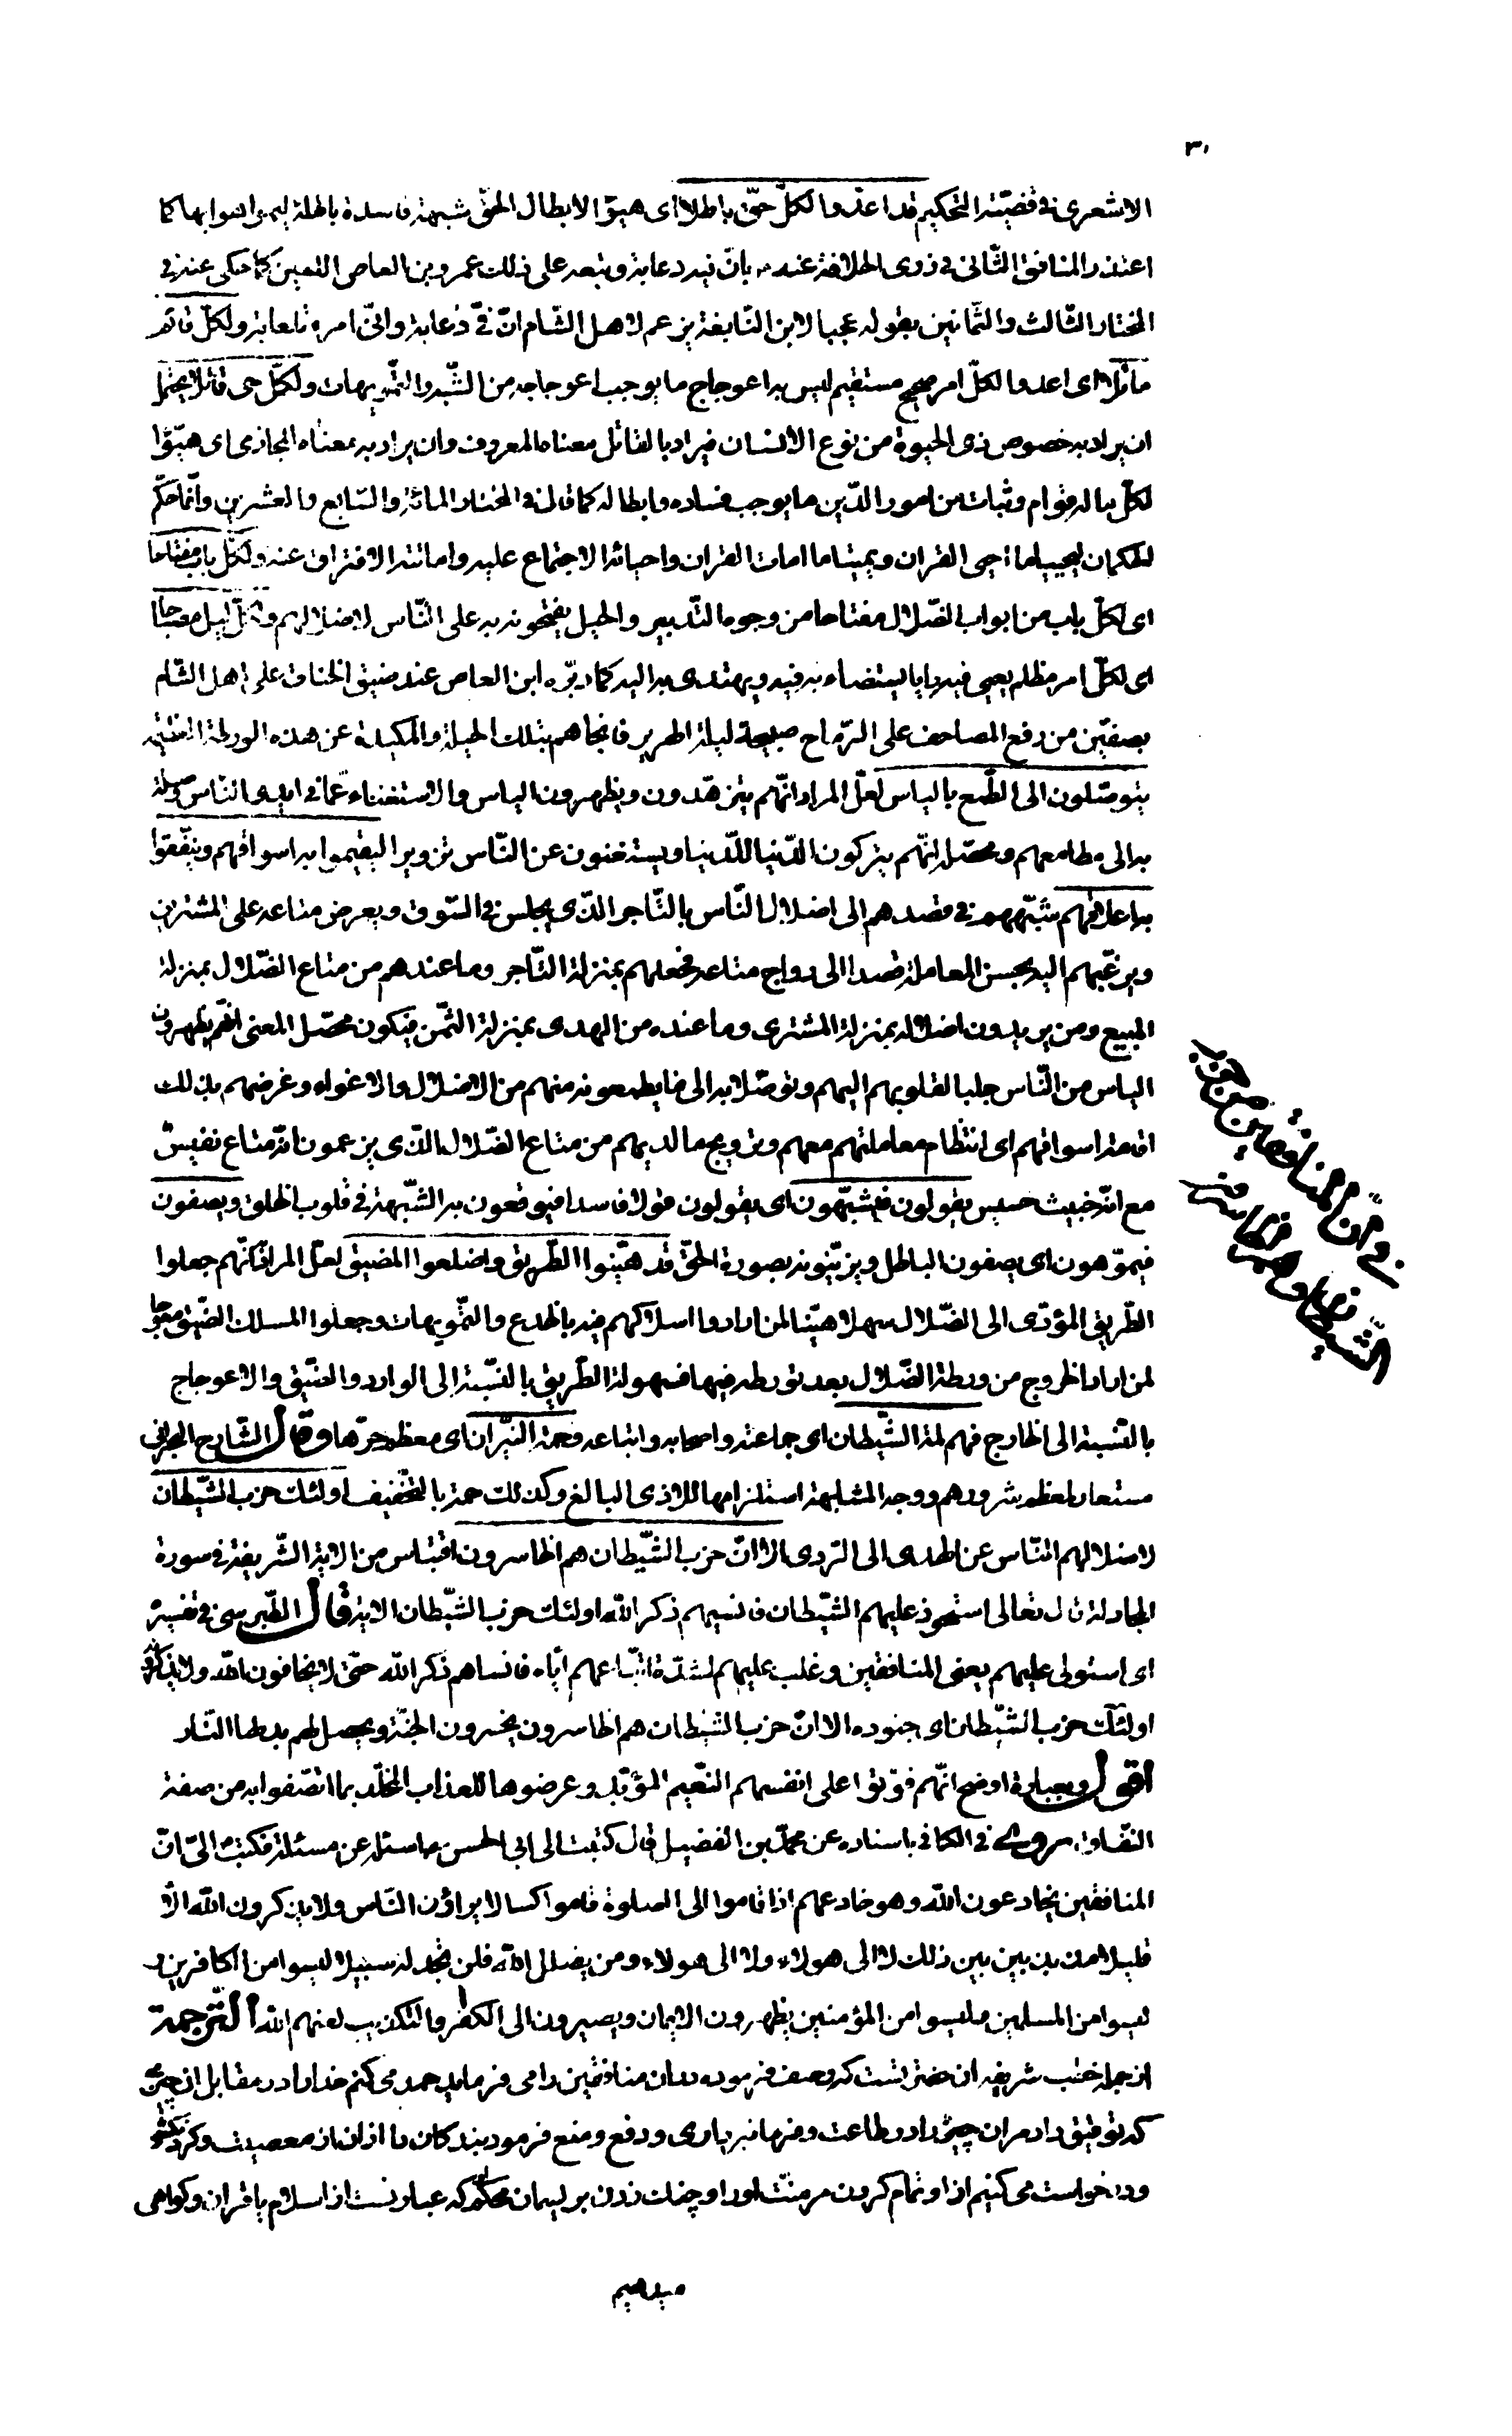 ٣٠
الاشعرى فى قضيّة التحكيم قد اعدّوا لكلّ حقّ باطلا اى هيّؤا لابطال الحقّ شبهة فاسدة باطلة ليموّهوا بها كما
اعتذر المنافق الثّانى فى زوى الخلافة عنه بانّ فيه دعابة وتبعه على ذلك عمرو بن العاص اللعين كما حكى عنه فى
المختار الثّالث والثّمانين بقوله عجبا لابن النّابغة يزعم لاهل الشّام انّ فىّ دعابة وانّى امرء تلعابة ولكلّ قائم
مائلا اى اعدوا لكلّ امر صحيح مستقيم ليس به اعوجاج ما يوجب اعوجاجه من الشّبه والتّمويهات ولكلّ حى قاتلا يحتمل
ان يراد به خصوص ذى الحيوة من نوع الانسان فيراد بالقاتل معناه المعروف وان يراد به معناه المجازى اى هيّؤا
لكلّ ما له قوام وثبات من امور الدّين ما يوجب فساده وابطاله كما قال فى المختار المائة والسّابع والعشرين وانّما حكّم
الحكمان ليحييا ما احيى القران ويميتا ما امات القران واحيائه الاجتماع عليه واماتته الافتراق عنه ولكلّ باب مفتاحا
اى لكلّ باب من ابواب الضّلال مفتاحا من وجوه التّدبير والحيل يفتحونه به على النّاس لاضلالهم ولكلّ ليل مصباحا
اى لكلّ امر مظلم يعيى فيه رايا يستضاء به فيه ويهتدى به اليه كما دبّره ابن العاص عند ضيق الخناق على اهل الشام
بصفّين من رفع المصاحف على الرّماح صبيحة ليلة الهرير فانجاهم بتلك الحيلة والمكيدة عن هذه الورطة العظيمة
يتوصّلون الى الطّمع بالياس لعلّ المراد انّهم يتزهّدون ويظهرون الياس والاستغناء عمّا فى ايدى النّاس وصلة
به الى مطامعهم ومحصّله انّهم يتركون الدّنيا للدّنيا ويستغنون عن النّاس تزويرا ليقيموا به اسواقهم وينفّقوا
به اعلاقهم شبّههم فى قصدهم الى اضلال النّاس بالتّاجر الّذى يجلس فى السّوق ويعرض متاعه على المشترين
ويرغّبهم اليه بحسن المعاملة قصدا الى رواج متاعه فجعلهم بمنزلة التّاجر وما عندهم من متاع الضّلال بمنزلة
المبيع ومن يريدون اضلاله بمنزلة المشترى وما عنده من الهدى بمنزلة الثّمن فيكون محصّل المعنى انّهم يظهرون
الياس من النّاس جلبا لقلوبهم اليهم وتوصّلا به الى ما يطمعونه منهم من الاضلال والاغواء وغرضهم بذلك
اقامة اسواقهم اى انتظام معاملتهم معهم وترويج ما لديهم من متاع الضّلال الّذى يزعمون انّه متاع نفيس
مع انّه خبيث خسيس يقولون فيشبّهون اى يقولون قولا فاسدا فيوقعون به الشّبهة فى قلوب الخلق ويصفون
فيموّهون اى يصفون الباطل ويزيّنونه بصورة الحقّ قد هيّنوا الطّريق واضلعوا المضيق لعلّ المراد انّهم جعلوا
الطّريق المؤدّى الى الضّلال سهلا هيّنا لمن ارادوا اسلاكهم فيه بالخدع والتّمويهات وجعلوا المسلك الضّيق معوجا
لمن اراد الخروج من ورطة الضّلال بعد تورطه فيها فسهولة الطّريق بالنّسبة الى الوارد والضّيق والاعوجاج
بالنّسبة الى الخارج فهم لمة الشّيطان اى جماعته واصحابه واتباعه وحمة النّيران اى معظم حرّها وقال الشّارح البحرانى
مستعار لمعظم شرورهم ووجه المشابهة استلزامها للاذى البالغ وكذلك حمة بالتّخفيف اولئك حزب الشّيطان
لاضلالهم النّاس عن الهدى الى الرّدى الا انّ حزب الشّيطان هم الخاسرون اقتباس من الاية الشّريفة فى سورة
المجادلة قال تعالى استحوذ عليهم الشّيطان فانسيهم ذكر الله اولئك حزب الشّيطان الاية قال الطّبرسى فى تفسيره
اى استولى عليهم يعنى المنافقين وغلب عليهم لشدّة اتّباعهم ايّاه فانساهم ذكر الله حتّى لا يخافون الله ولا يذكرونه
اولئك حزب الشّيطان اى جنوده الا انّ حزب الشّيطان هم الخاسرون يخسرون الجنّة ويحصل لهم بدلها النّار
اقول وبعبارة اوضح انّهم فوّتوا على انفسهم النّعيم المؤبّد وعرضوها للعذاب المخلّد بما اتّصفوا به من صفة
النّفاق روى فى الكافى باسناده عن محمّد بن الفضيل قال كتبت الى ابى الحسن اسئله عن مسئلة فكتب الىّ انّ
المنافقين يخادعون الله وهو خادعهم اذا قاموا الى الصلوة قاموا كسالا يراؤن النّاس ولا يذكرون الله الّا
قليلا مذبذبين بين ذلك لا الى هولاء ولا الى هولاء ومن يضلل الله فلن تجد له سبيلا ليسوا من الكافرين و
ليسوا من المسلمين وليسوا من المؤمنين يظهرون الايمان ويصيرون الى الكفر والتكذيب لعنهم الله الترجمة
از جمله خطب شريفه ان حضرتست كه وصف فرموده در ان منافقين را مى فرمايد حمد مى كنم خدا را در مقابل ان چيزى
كه توفيق داد مر ان چيز را در طاعت وفرمانبردارى ودفع ومنع فرمود بندگان را از ان از معصيت وگردنكشى
ودرخواست مى كنيم از او تمام كردن مر منّت او را وچنك زدن بريسمان محكم او كه عبارتست از اسلام يا قران وگواهى
ميدهيم
فى ذمّ المنافقين من حزب
الشيطان وهم الخاسرون